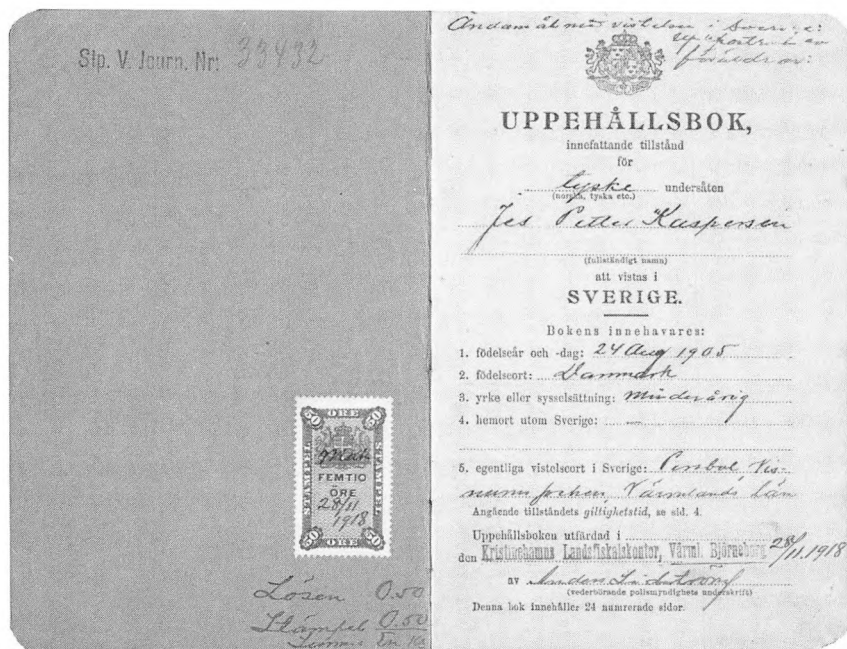 Stp. V. Journ. Nr: 33432
STÄMPEL
ÖRE
STÄMPEL
50
50
FEMTIO
ÖRE
28/11
1918
50
50
Lösen 0.50
Stämpel 0.50
Summa En Kr
Ändamål med vistelsen i Sverige:
av
föräldrar:
UPPEHÅLLSBOK,
innefattande tillstånd
för
tyske undersåten
(norska, tyska etc.)
Jes Petter Kaspersen
(fullständigt namn)
att vistas i
SVERIGE.
Bokens innehavares:
1. födelseår och -dag: 24 Aug 1905
2. födelseort: Danmark
3. yrke eller sysselsättning: Minderårig
4. hemort utom Sverige: —
5. egentliga vistelseort i Sverige: Vis-
nums socken, Värmlands län
Angående tillståndets giltighetstid, se sid. 4.
Uppehållsboken utfärdad i
den Kristinehamns Landsfiskalskontor, Värml. Björneborg 28/11.1918
av
(vederbörande polismyndighets underskrift)
Denna bok innehåller 24 numrerade sidor.